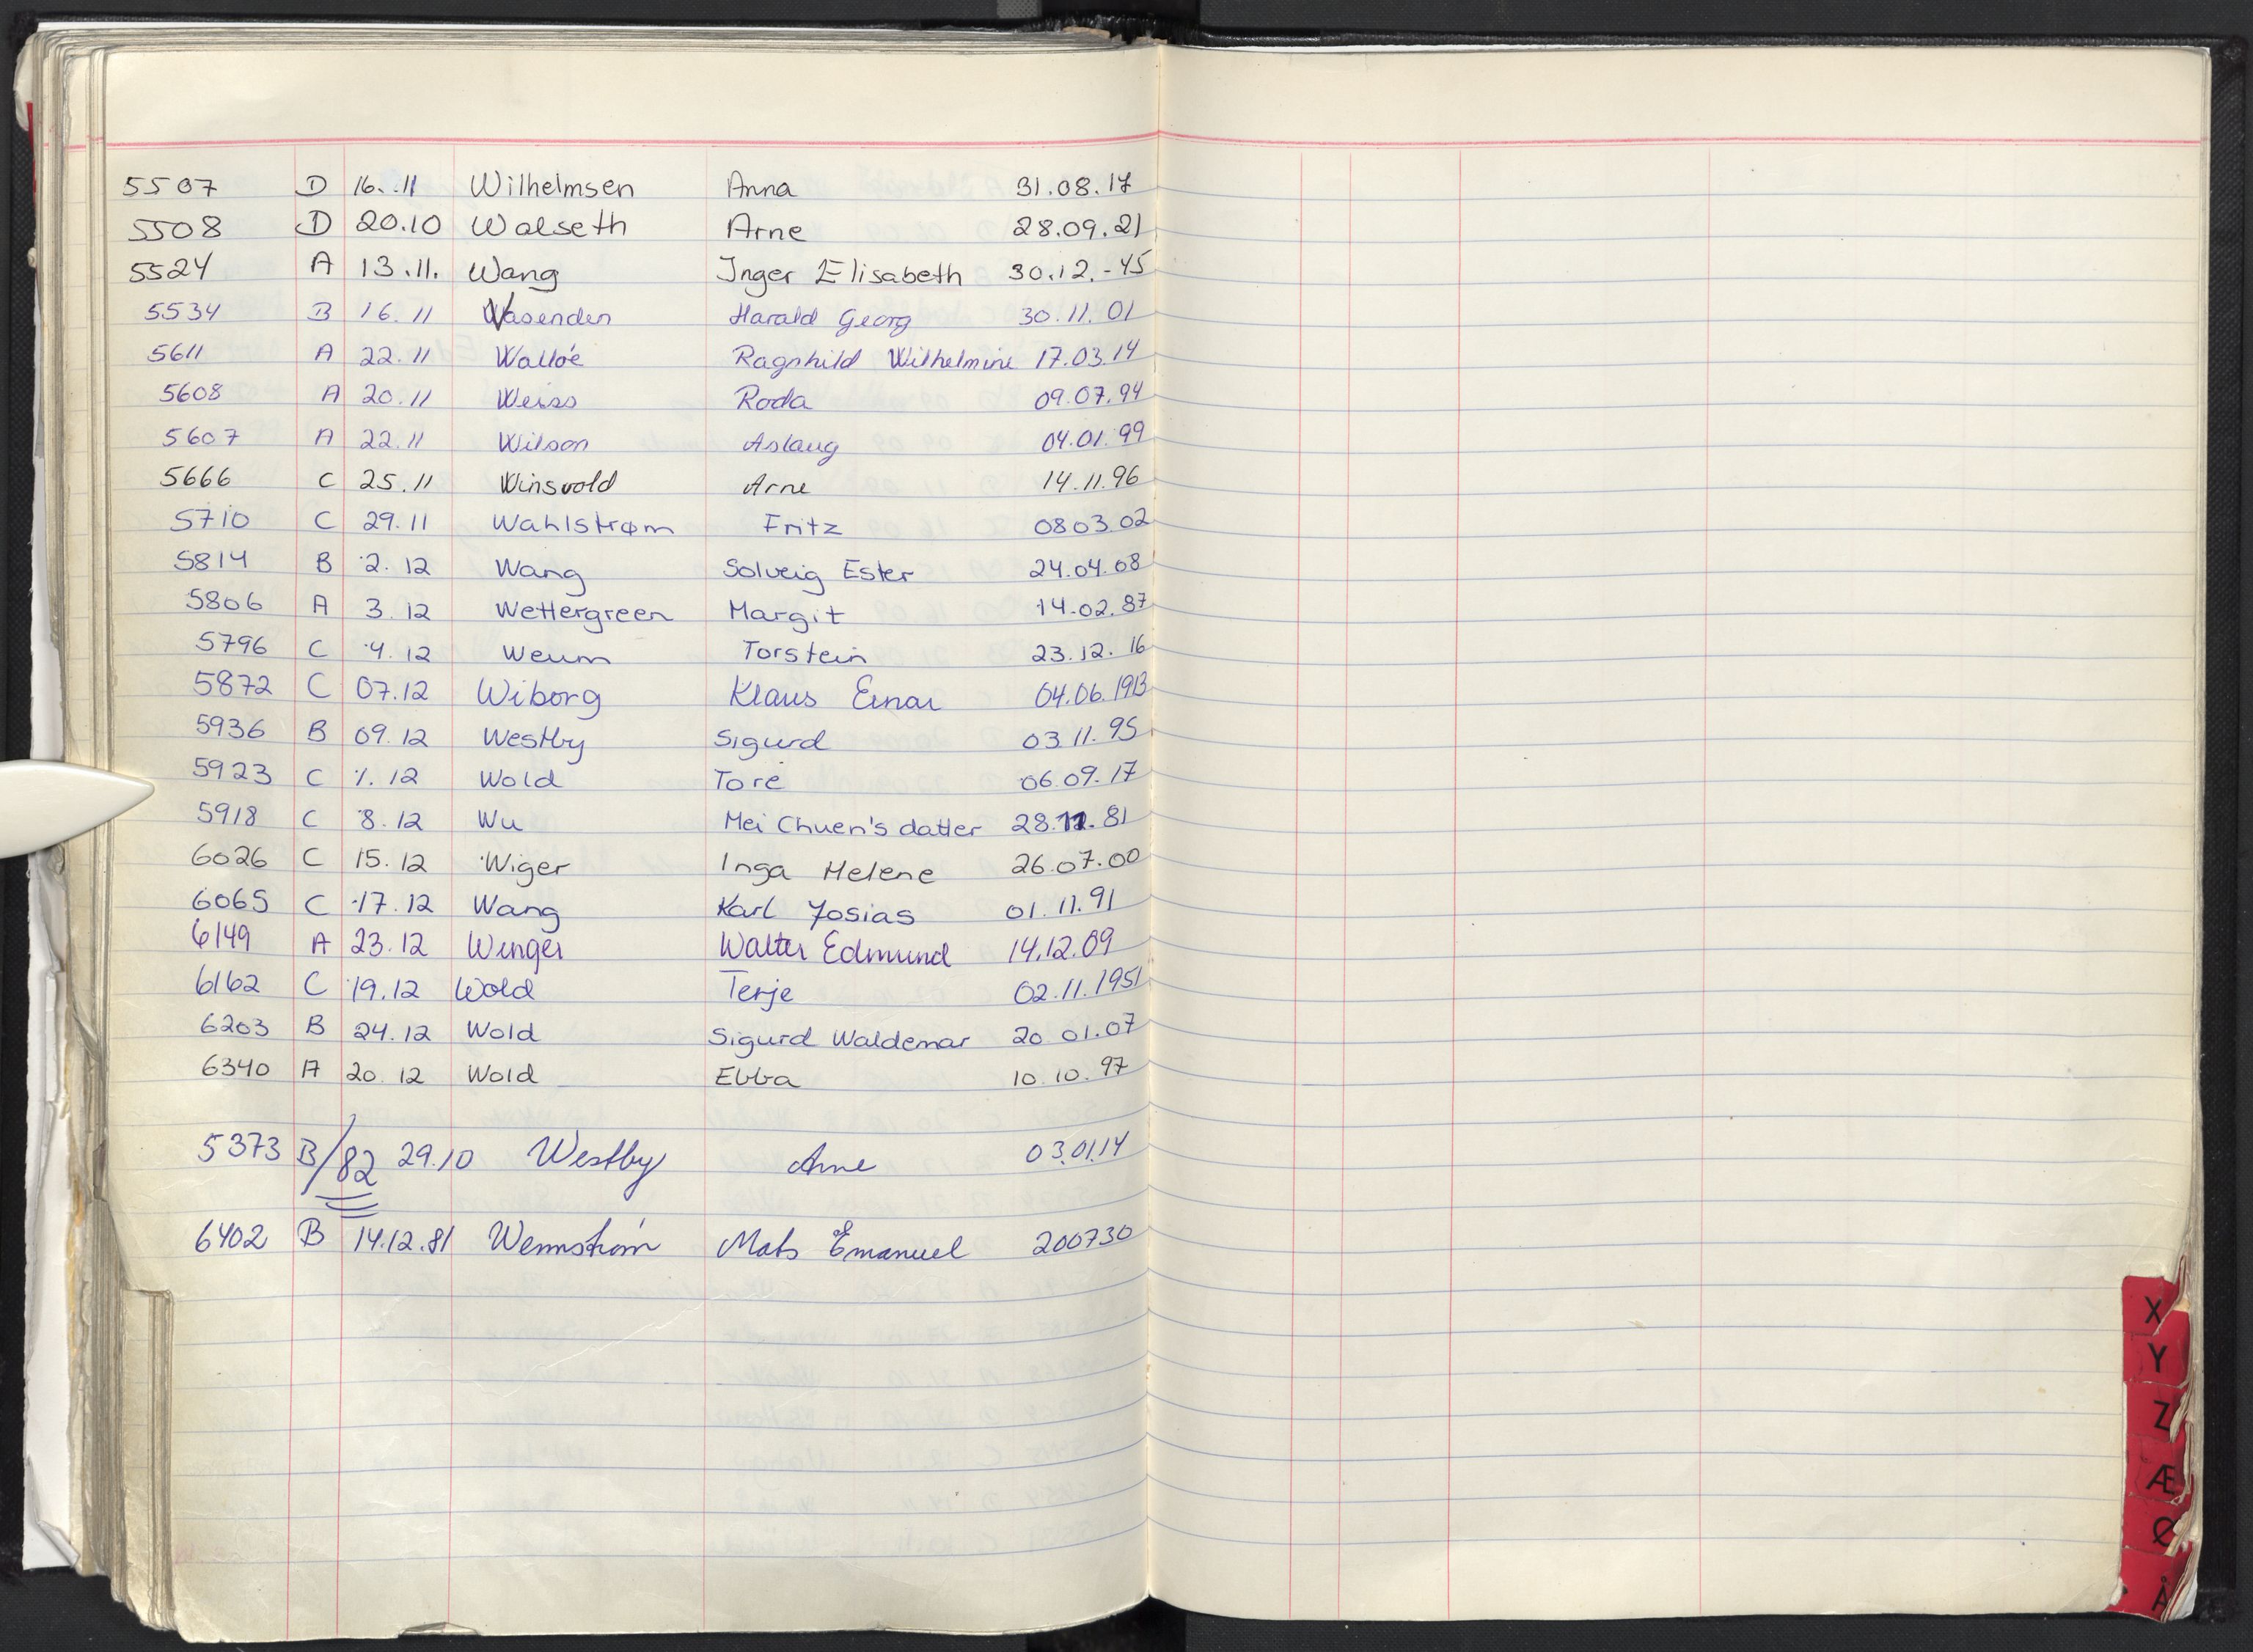 5507 D 16.11 Wilhelmsen Anna 31.08.17
5508 D 20.10 Walseth Arne 28.09.21
5524 A 13.11. Wang Inger Elisabeth 30.12.-45
5534 B 16.11 Wasenden Harald Georg 30.11.01
5611 A 22.11 Walloe Ragnhild Wilhelmine 17.03.14
5608 A 20.11 Weiss Roda 09.07.94
5607 A 22.11 Wilson Aslaug 04.01.99
5666 C 25.11 Winsvold Arne 14.11.96
5710 C 29.11 Wahlstrøm Fritz 08 03.02
5814 B 2.12 Wang Solveig Ester 24.04.08
5806 A 3.12 Wettergreen Margit 14.02.87
5796 C 4.12 Weum Torstein 23.12.16
5872 C 07.12 Wiborg Klaus Einar 04.06.1913
5936 B 09.12 Westby Sigurd 03.11.95
5923 C 12 Wold Tore 06.09.17
5918 C 8.12 Wu Mei Chuen's datter 28. 81
6026 C 15.12 Wiger Inga Helene 26.07.00
6065 C 17.12 Wang Karl Josias 01.11.91
6149 A 23.12 Winger Walter Edmund 14.12.09
6162 C 19.12 Wold Terje 02.11.1951
6203 B 24.12 Wold Sigurd Waldemar 20 01.07
6340 A 20.12 Wold Ebba 10.10.97
5373 B/82 29.10 Westby Arne 03.01.14
6402 B 14.12.81 Wennström Mats Emanuel 200730
X
Y
Z
Æ
Ø
Å